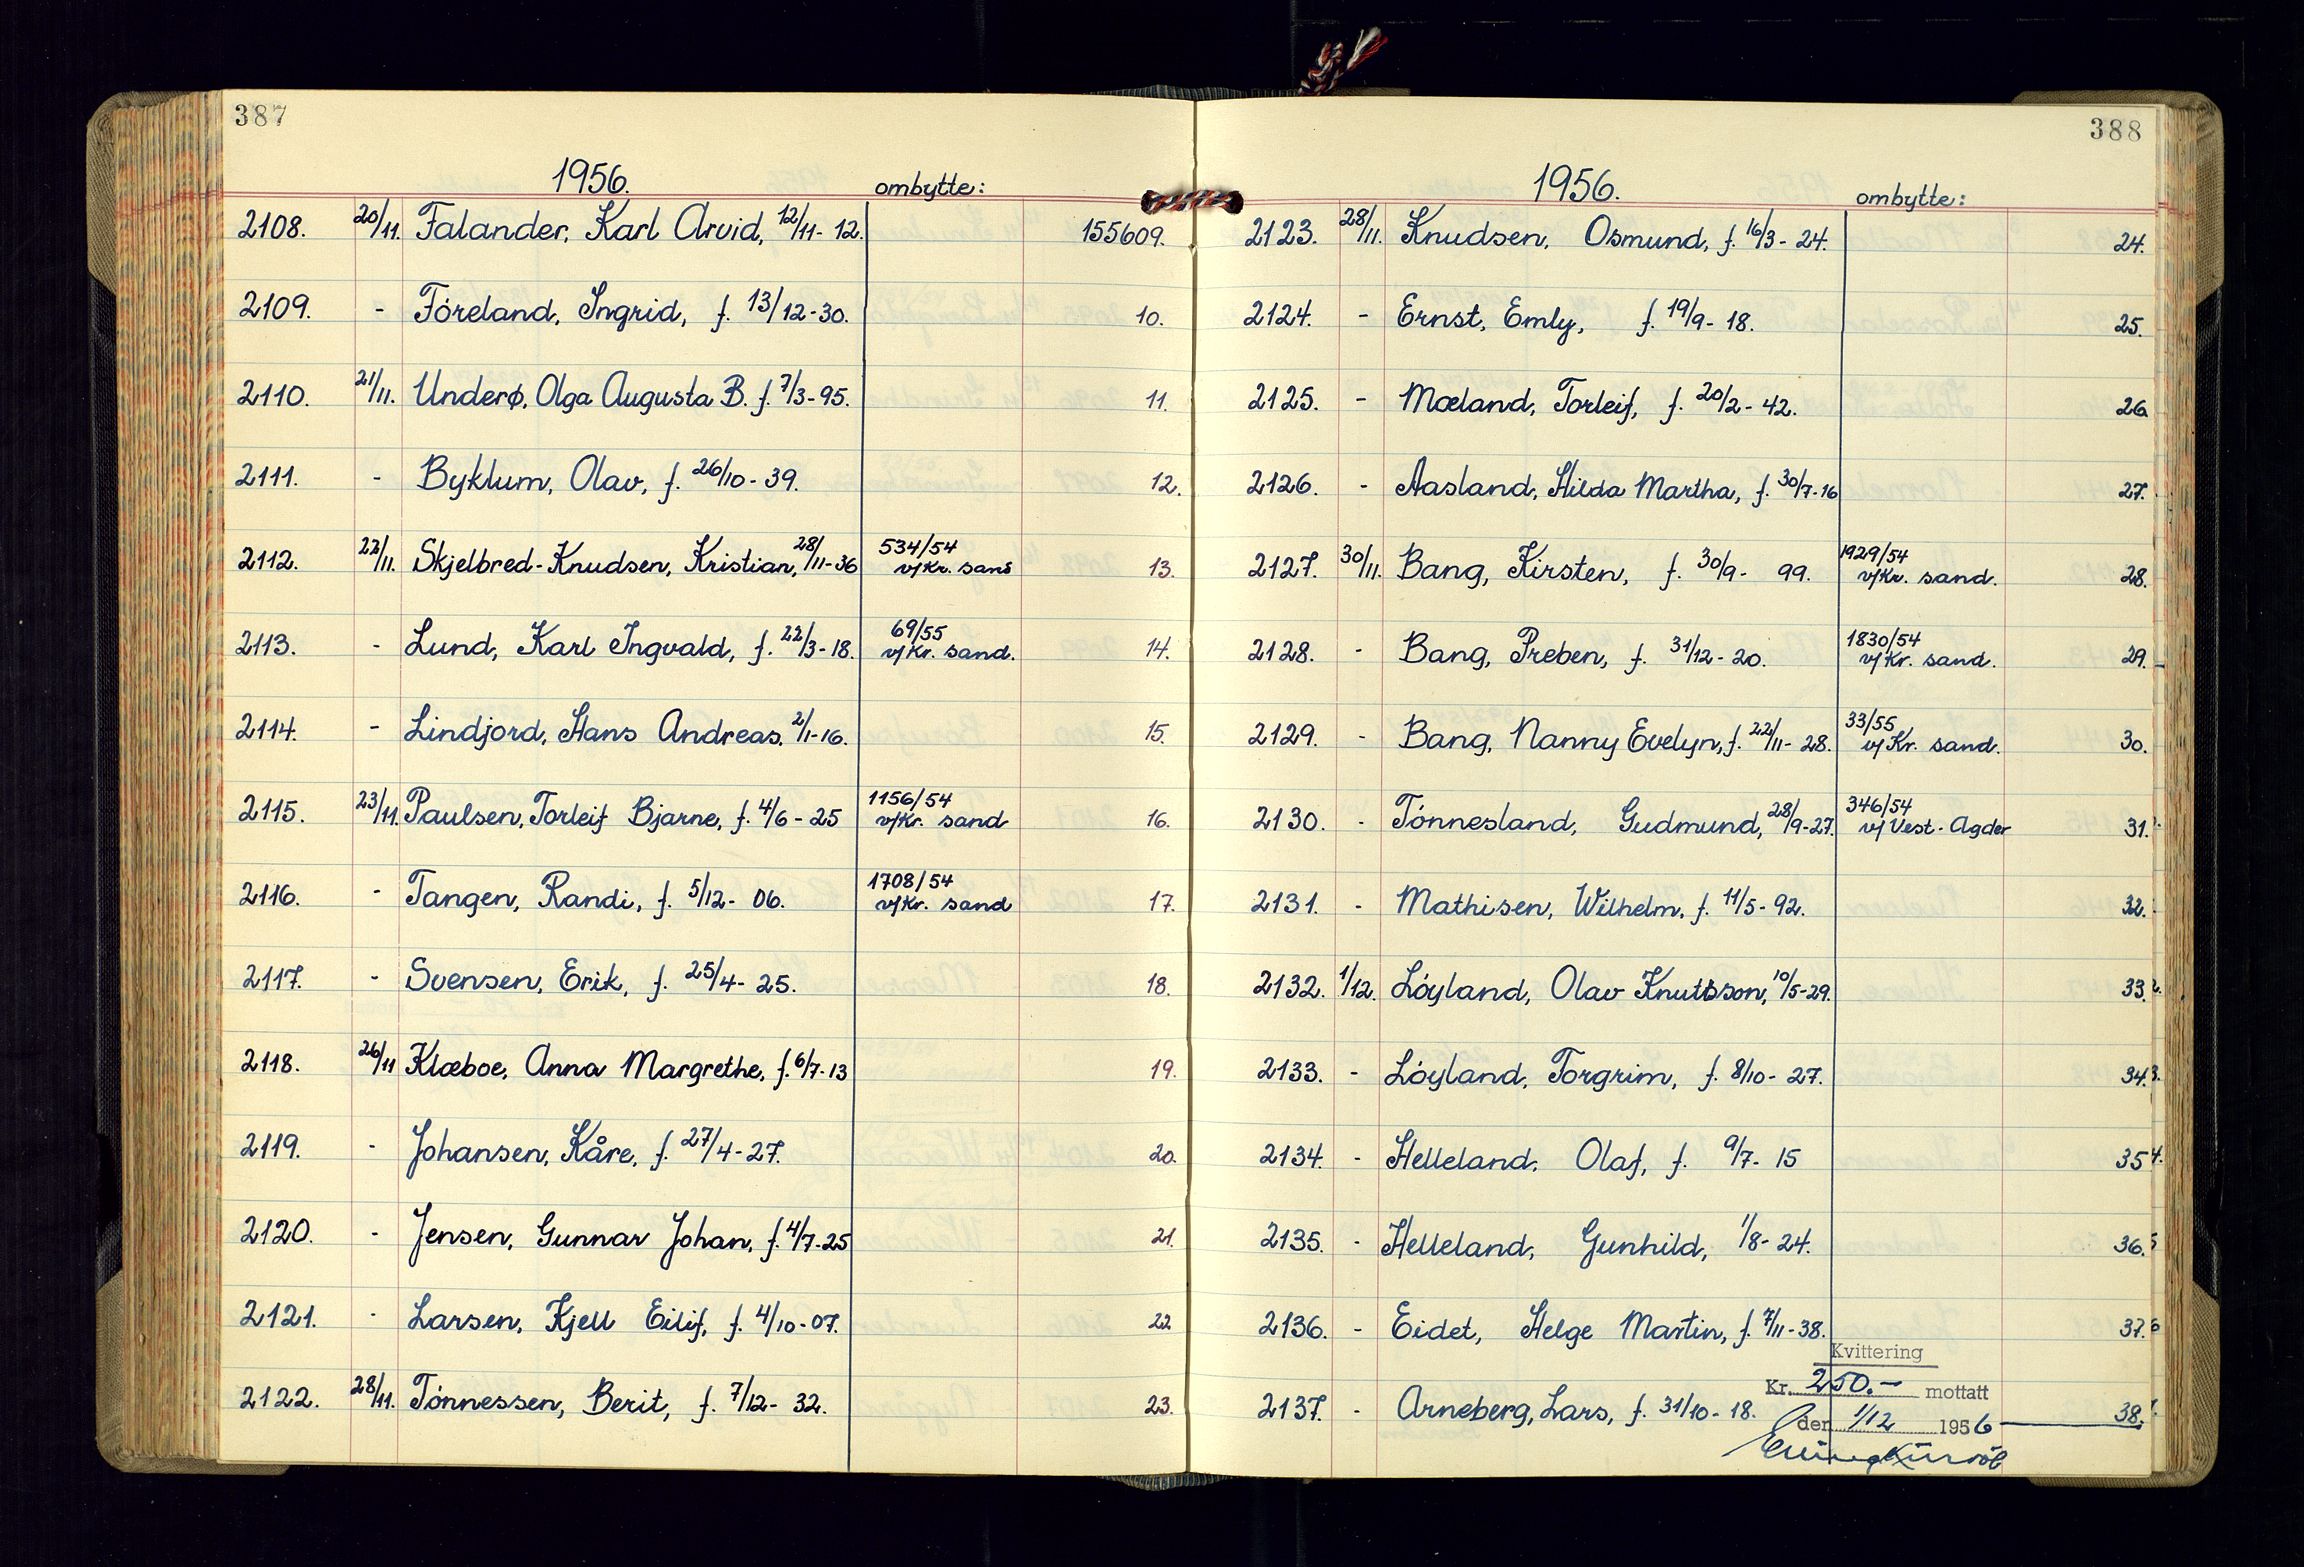 387
1956. ombytte:
2108. 20/11. Falander, Karl Arvid, 12/11-12. 155609.
2109. - Föreland, Ingrid, f. 13/12-30. 10.
2110. 21/11. Underø, Olga Augusta B. f. 7/3-95. 11.
2111. - Byklum, Olav, f. 26/10-39. 12.
2112. 22/11. Skjelbred-Knudsen, Kristian, 28/11-36 534/54 v/Kr. sand 13.
2113. - Lund, Karl Ingvald, f. 22/3-18. 69/55 v/Kr. sand. 14.
2114. - Lindjord, Hans Andreas, 2/1-16. 15.
2115. 23/11. Paulsen, Torleif Bjarne, f. 4/6-25 1156/54 v/Kr. sand 16.
2116. - Tangen, Randi, f. 5/12-06. 1708/54 v/Kr. sand 17.
2117. - Svensen, Erik, f. 25/4-25. 18.
2118. 26/11 Klæboe, Anna Margrethe, f. 6/7-13 19.
2119. - Johansen, Kåre, f. 27/4-27. 20.
2120. - Jensen, Gunnar Johan, f. 4/7-25 21.
2121. - Larsen, Kjell Eilif, f. 4/10-07. 22
2122. 28/11. Tönnessen, Berit, f. 7/12-32. 23.
388
1956. ombytte:
2123. 28/11. Knudsen, Osmund, f. 16/3-24. 24.
2124. - Ernst, Emly, f. 19/9-18. 25.
2125. - Mæland, Torleif, f. 20/2-42. 26
2126. - Aasland, Hilda Martha, f. 30/7-16 27.
2127. 30/11. Bang, Kirsten, f. 30/9-99. 1929/54 v/Kr. sand. 28.
2128. - Bang, Preben, f. 31/12-20. 1830/54 v/Kr. sand. 29.
2129. - Bang, Nanny Evelyn, f. 22/11-28. 33/55 v/Kr. sand. 30.
2130. - Tönnesland, Gudmund, 28/9-27. 346/54 v/Vest-Agder 31.
2131. - Mathisen, Wilhelm, f. 11/5-92. 32.
2132. 1/12. Löyland, Olav Knutsson, 10/5-29. 33.
2133. - Löyland, Torgrim, f. 8/10-27. 34.
2134. - Helleland, Olaf, f. 9/7-15 35
2135. - Helleland, Gunhild, 1/8-24. 36.
2136. - Eidet, Helge Martin, f. 7/11-38. 37.
Kvittering
Kr. 250.- mottatt
2137. - Arneberg, Lars, f. 31/10-18. 38.
den 1/12 1956